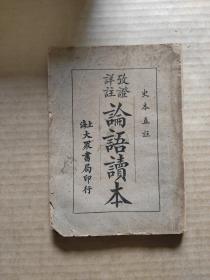 史本直註
攷證
詳註
論語讀本
上海
大眾書局印行